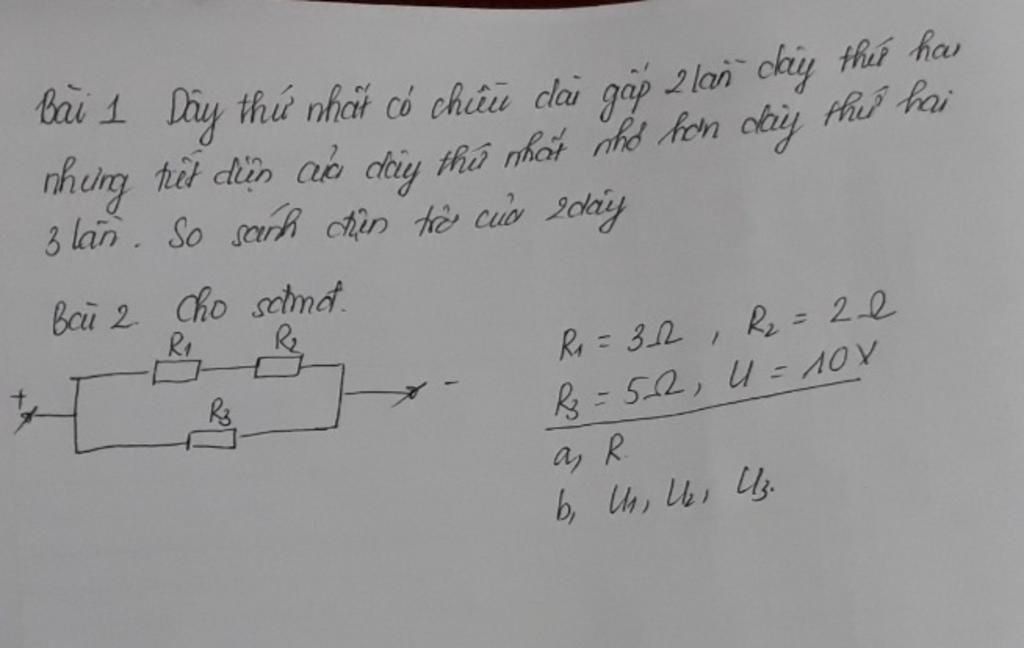 Bài 1 Dây thứ nhất có chiều dài gấp 2 lần dây thứ hai
nhưng tiết diện của dây thứ nhất nhỏ hơn dây thứ hai
3 lần. So sánh điện trở của 2 dây
Bài 2. Cho sđmđ.
R1 R2
+ -
R3
R1 = 3Ω , R2 = 2Ω
R3 = 5Ω, U = 10V
a, R.
b, U1, U2, U3.